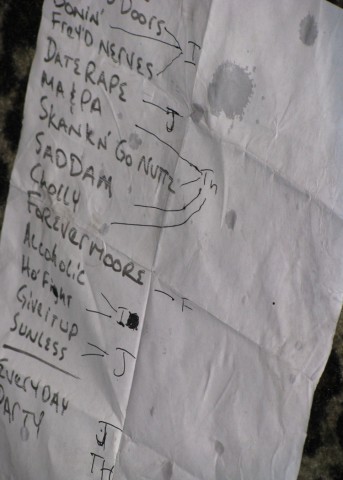 Doors
Fry'D NERVES
DATE RAPE
MA & PA
SKANKN' Go NUTTZ
SADDAM
CHOLLY
ForeverMOORE
Alcoholic
Ho' Fight
Give it up
SUNLESS
EVERYDAY
PARTY
I
J
Th
F
I
J
J
TH